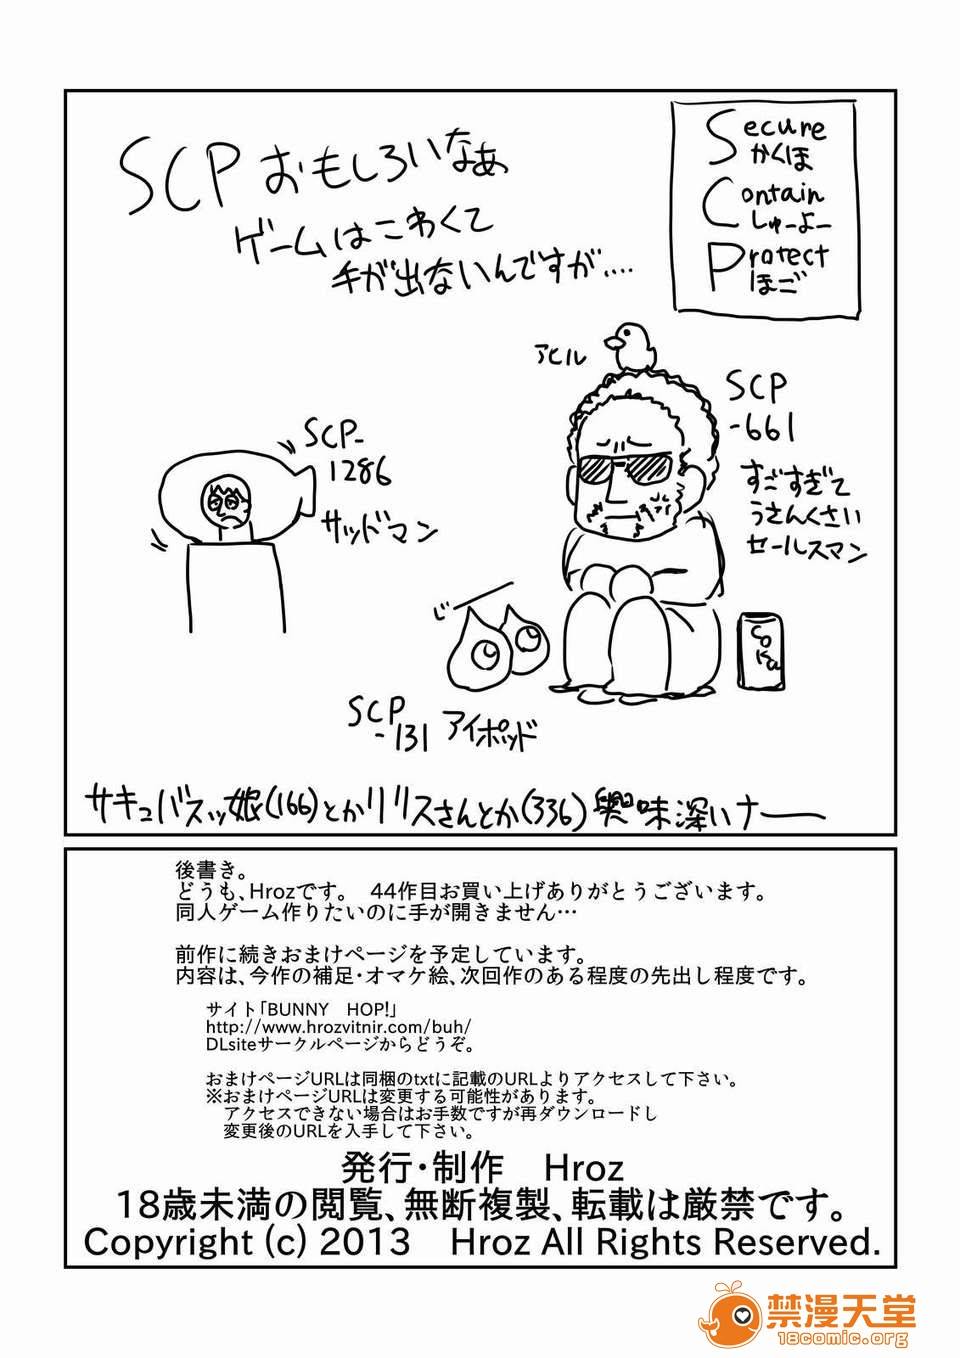 SCP おもしろいなぁ
ゲームはこわくて
手が出ないんですが....
Secure
かくほ
Contain
しゅーよー
Protect
ほご
アヒル
SCP
-661
すごすぎて
うさんくさい
セールスマン
SCP-
1286
サッドマン
じ
Coka
SCP
-131 アイポッド
サキュバスッ娘(166)とかリリスさんとか(336)興味深いナー
後書き。
どうも、Hrozです。 44作目お買い上げありがとうございます。
同人ゲーム作りたいのに手が開きません…
前作に続きおまけページを予定しています。
内容は、今作の補足・オマケ絵、次回作のある程度の先出し程度です。
サイト「BUNNY HOP!」
http://www.hrozvitnir.com/buh/
DLsiteサークルページからどうぞ。
おまけページURLは同梱のtxtに記載のURLよりアクセスして下さい。
※おまけページURLは変更する可能性があります。
アクセスできない場合はお手数ですが再ダウンロードし
変更後のURLを入手して下さい。
発行・制作 Hroz
18歳未満の閲覧、無断複製、転載は厳禁です。
Copyright (c) 2013 Hroz All Rights Reserved.
禁漫天堂
18comic.org